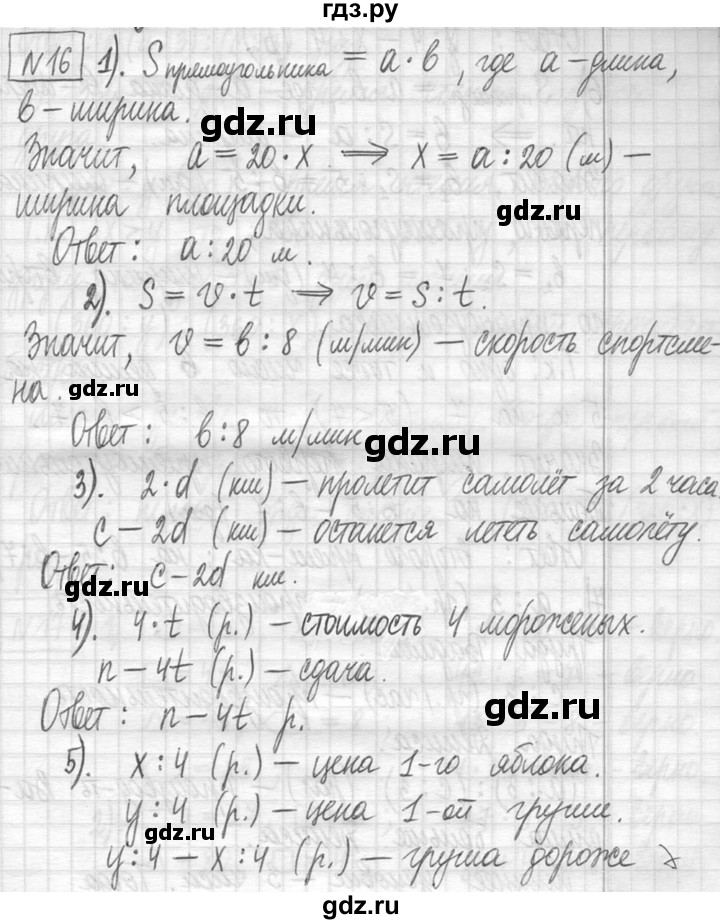 гдз.ру
№16 1). Sпрямоугольника = a · b, где a – длина,
b – ширина.
gdz.ru
Значит, a = 20 · x ⟹ x = a : 20 (м) –
ширина площадки.
gdz.ru
Ответ: a : 20 м.
2). S = v · t ⟹ v = S : t.
Значит, v = b : 8 (м/мин) – скорость спортсме-
на.
gdz.ru
Ответ: b : 8 м/мин
gdz.ru
3). 2 · d (км) – пролетит самолёт за 2 часа.
c – 2d (км) – останется лететь самолёту.
Ответ: c – 2d км.
gdz.ru
4). 4 · t (р.) – стоимость 4 мороженых.
n – 4t (р.) – сдача.
Ответ: n – 4t р.
gdz.ru
5). x : 4 (р.) – цена 1-го яблока.
y : 4 (р.) – цена 1-ой груши.
gdz.ru
y : 4 – x : 4 (р.) – груша дороже